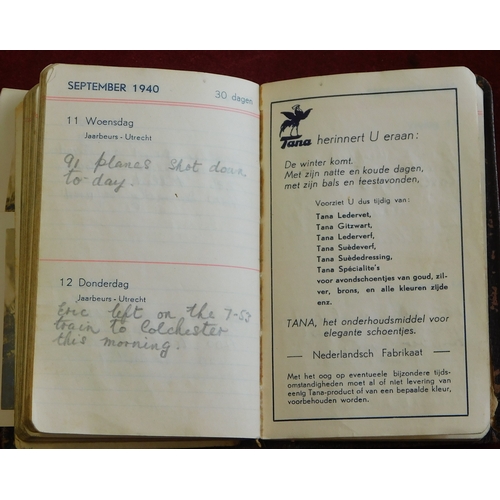 SEPTEMBER 1940
30 dagen
11 Woensdag
Jaarbeurs - Utrecht
91 planes shot down
to day.
12 Donderdag
Jaarbeurs - Utrecht
Eric left on the 7-53
train to Colchester
this morning.
Tana herinnert U eraan:
De winter komt.
Met zijn natte en koude dagen,
met zijn bals en feestavonden,
Voorziet U dus tijdig van:
Tana Ledervet,
Tana Gitzwart,
Tana Lederverf,
Tana Suèdeverf,
Tana Suèdedressing,
Tana Spécialite's
voor avondschoentjes van goud, zil-
ver, brons, en alle kleuren zijde
enz.
TANA, het onderhoudsmiddel voor
elegante schoentjes.
Nederlandsch Fabrikaat
Met het oog op eventueele bijzondere tijds-
omstandigheden moet al of niet levering van
eenig Tana-product of van een bepaalde kleur,
voorbehouden worden.